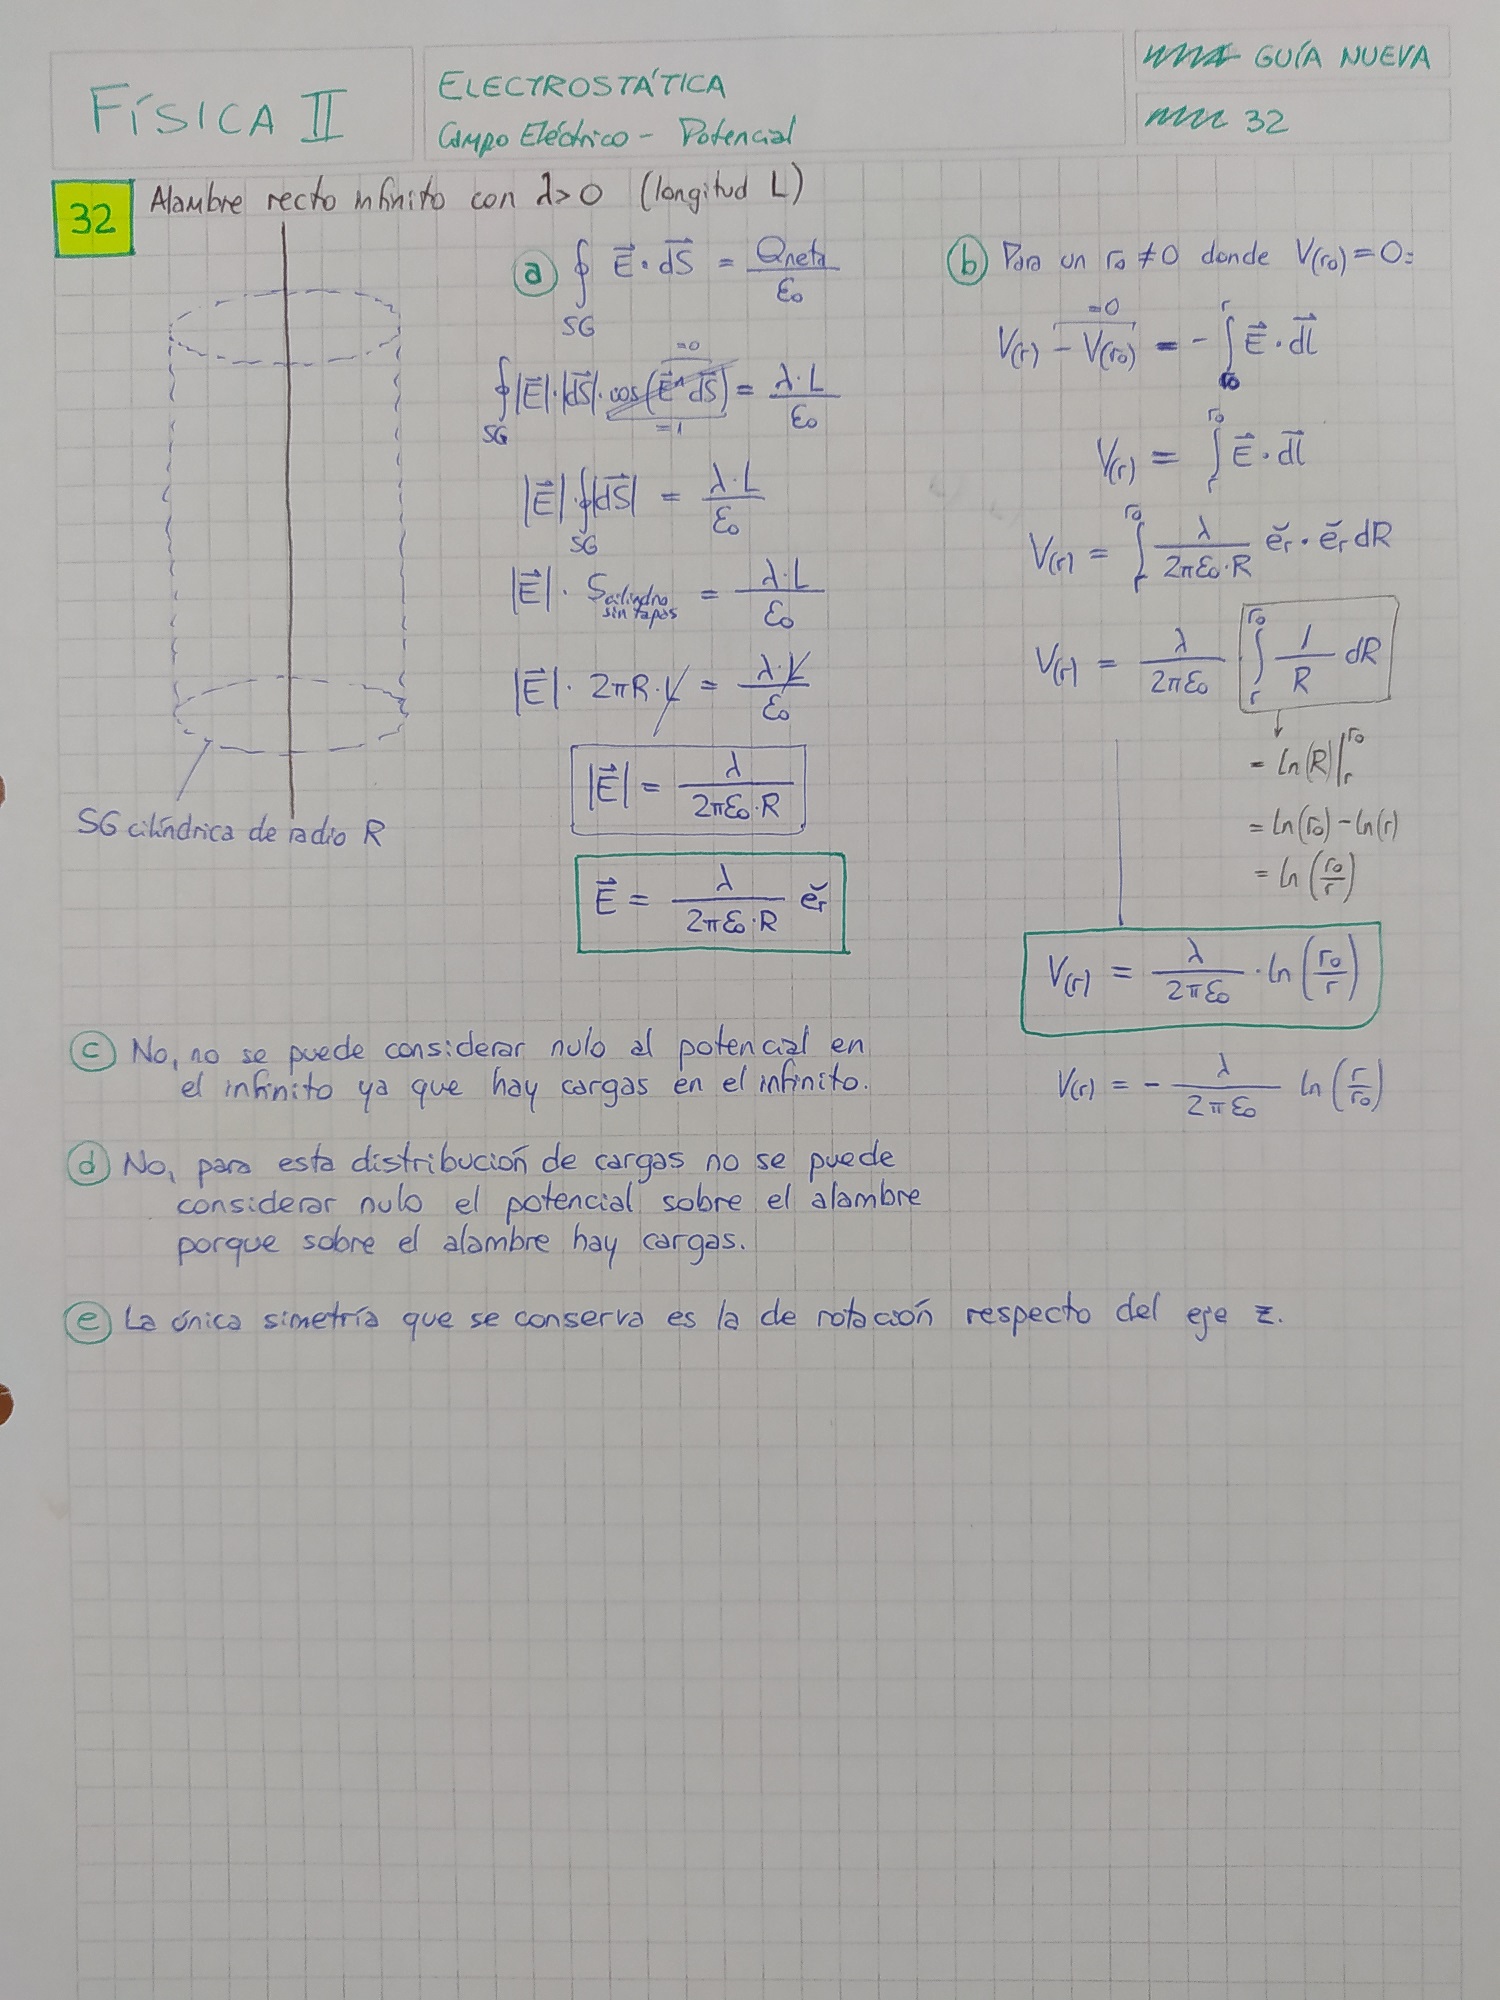 FÍSICA II
ELECTROSTÁTICA
Campo Eléctrico - Potencial
GUÍA NUEVA
32
32
Alambre recto infinito con λ>0 (longitud L)
SG cilíndrica de radio R
a ∮ E⃗ · dS⃗ = Qneta / ε₀
SG
∮ |E⃗|·|dS⃗|· cos(E⃗^dS⃗) = λ·L / ε₀
=0
SG
=1
|E⃗| ∮|dS⃗| = λ·L / ε₀
SG
|E⃗| · S cilindro sin tapas = λ·L / ε₀
|E⃗| · 2πR·L = λ·L / ε₀
|E⃗| = λ / 2πε₀·R
E⃗ = λ / 2πε₀·R ĕr
b Para un r₀ ≠ 0 donde V(r₀) = 0:
V(r) - V(r₀) = - ∫_{r₀}^{r} E⃗ · dl⃗
=0
V(r) = ∫_{r}^{r₀} E⃗ · dl⃗
V(r) = ∫_{r}^{r₀} λ / 2πε₀·R ĕr · ĕr dR
V(r) = λ / 2πε₀ ∫_{r}^{r₀} 1/R dR
= ln(R)|_{r}^{r₀}
= ln(r₀) - ln(r)
= ln (r₀/r)
V(r) = λ / 2πε₀ · ln (r₀/r)
V(r) = - λ / 2πε₀ ln (r/r₀)
c No, no se puede considerar nulo al potencial en
el infinito ya que hay cargas en el infinito.
d No, para esta distribución de cargas no se puede
considerar nulo el potencial sobre el alambre
porque sobre el alambre hay cargas.
e La única simetría que se conserva es la de rotación respecto del eje z.